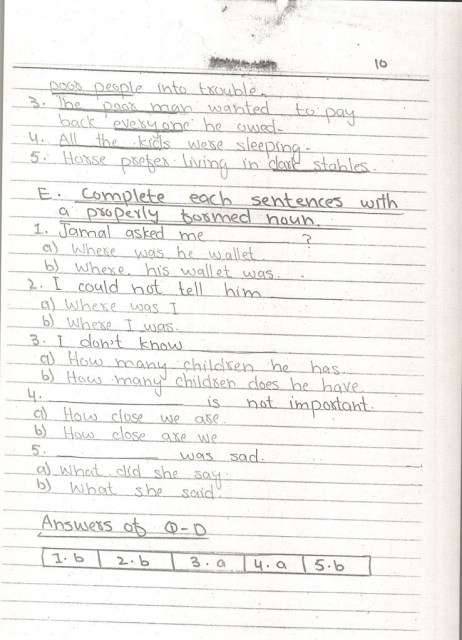 10
poor people into trouble.
3. The poor man wanted to pay
back everyone he owed.
4. All the kids were sleeping.
5. Horse prefer living in dark stables.
E. Complete each sentences with
a properly formed noun.
1. Jamal asked me ________?
a) Where was he wallet
b) Where his wallet was.
2. I could not tell him ________
a) Where was I
b) Where I was.
3. I don't know ________
a) How many children he has.
b) How many children does he have
4. ________ is not important.
a) How close we are.
b) How close are we
5. ________ was sad.
a) What did she say.
b) What she said.
Answers of Q-D
1. b 2. b 3. a 4. a 5. b